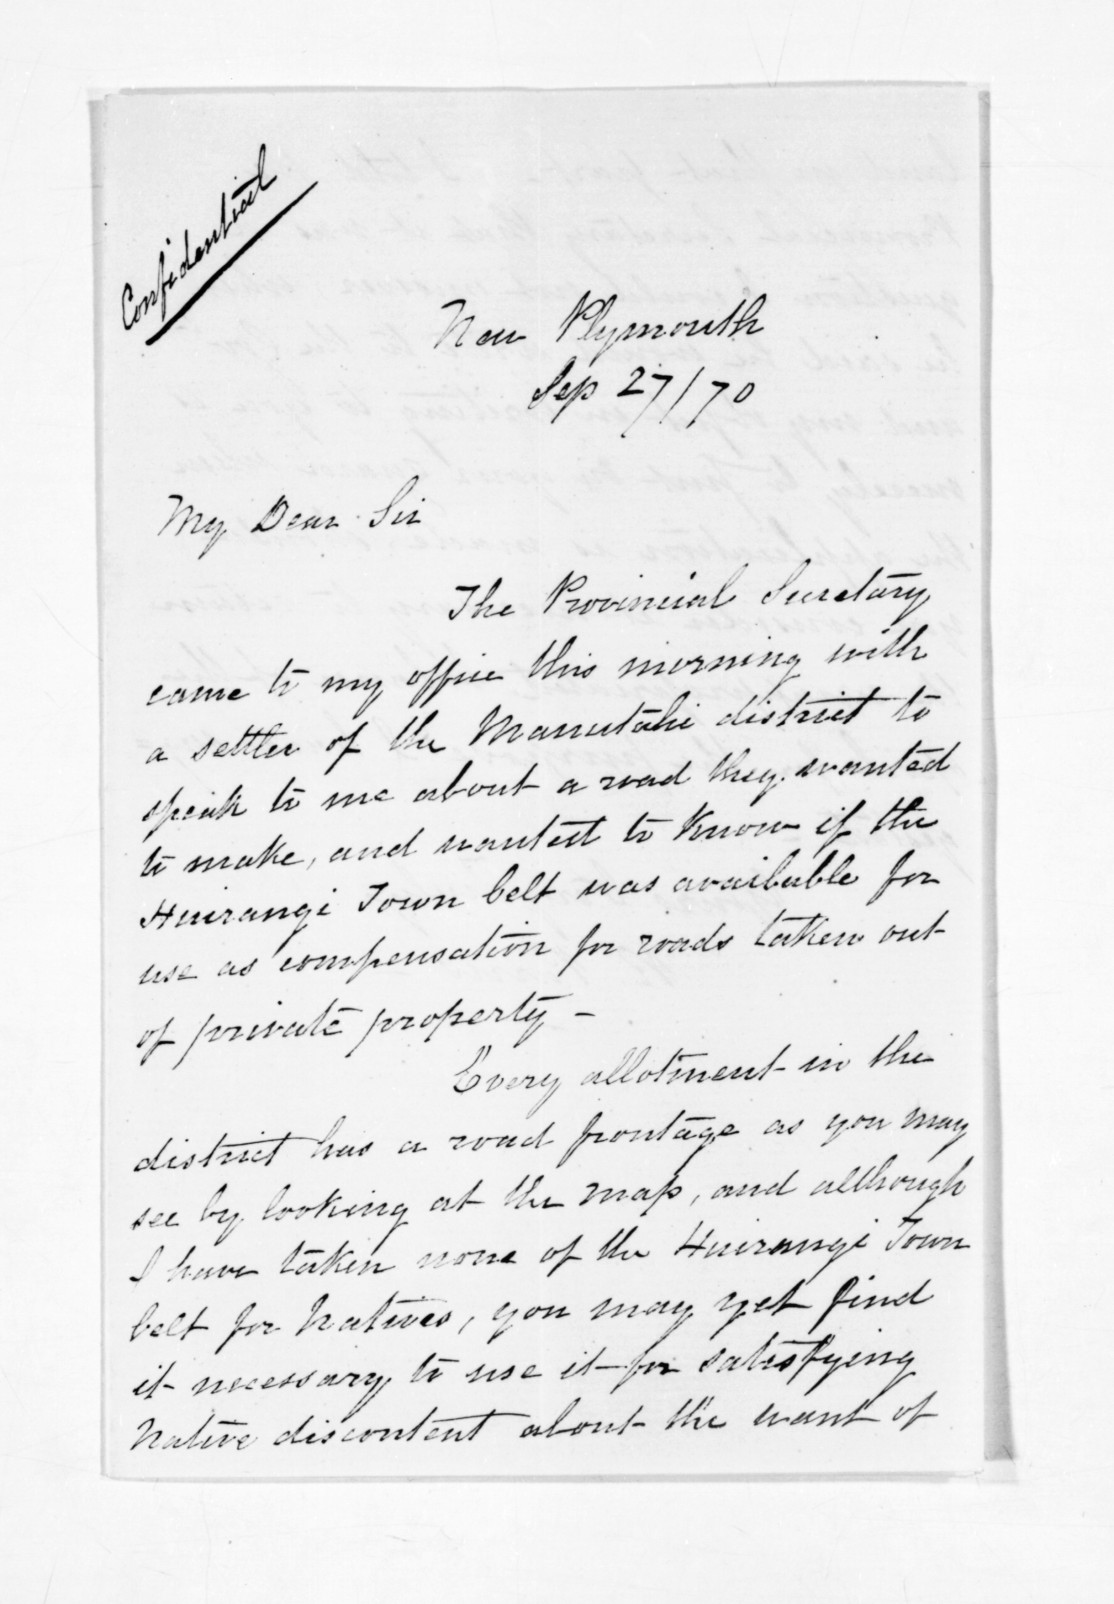 Confidential
New Plymouth
Sep 27/70
My Dear Sir
The Provincial Secretary
came to my office this morning with
a settler of the Manutahi district to
speak to me about a road they wanted
to make, and wanted to know if the
Huirangi Town belt was available for
use as compensation for roads taken out
of private property -
Every allotment in the
district has a road frontage as you may
see by looking at the map, and although
I have taken none of the Huirangi Town
belt for Natives, you may yet find
it necessary to use it for satisfying
Native discontent about the want of